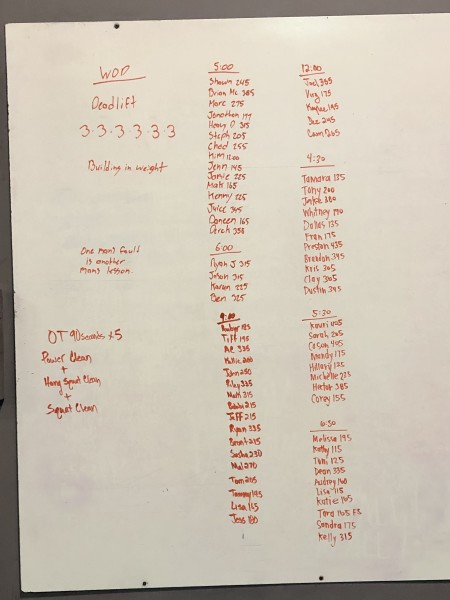 WOD
Deadlift
3-3-3-3-3-3
Building in weight
One mans fault
is another
mans lesson.
OT 90seconds x5
Power Clean
+
Hang Squat Clean
+
Squat Clean
5:00
Shawn 245
Brian Mc 385
Marc 275
Jonathan
Henry D 315
Steph 205
Chad 255
Kim
Jenn 145
Jamie 225
Matt 165
Kenny 225
Juice 345
Doreen 165
6:00
Ryan J 315
Jason 315
Karen 225
Ben 325
9:00
Tiff 195
Kallie 200
John 250
Riley 335
Matt 315
Robin 215
Tiff 215
Ryan 335
Brent 275
Sasha 230
Mal 270
Tom 205
Tammy 195
Lisa 165
Jess 180
12:00
Joel 355
Virg 175
Kaylee 195
Dee 245
4:30
Tamara 135
Tony 200
380
Whitney 190
Dallas 135
Fran 175
Preston 435
Brandon 345
Kris 305
Clay 305
Dustin 345
5:30
Kouri 405
Sarah 205
Cason 405
Mandy 175
Hillary 125
Michelle 225
Hector 385
Corey 155
6:30
Melissa 195
Kathy 115
Toni 125
Dean 335
Audrey 140
Lisa 115
Katie 165
Tara 165 FS
Sandra 175
Kelly 315